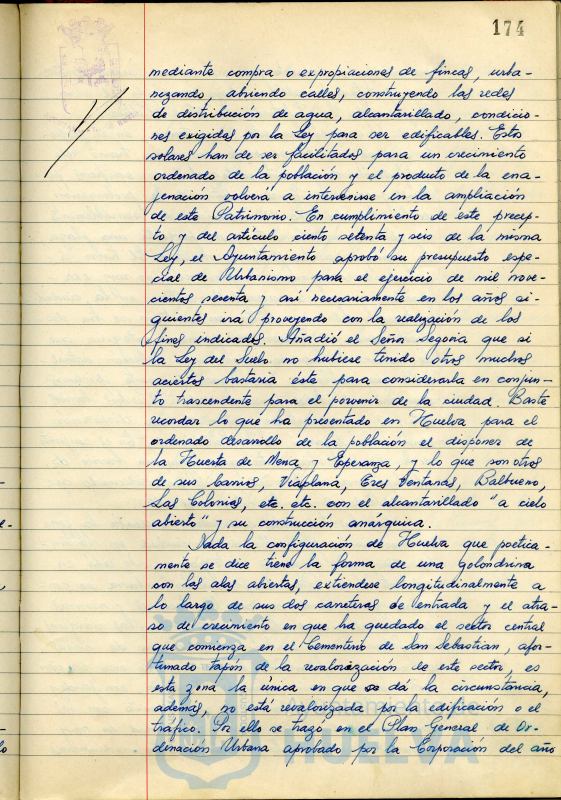 174
mediante compra o expropiaciones de fincas, urba-
nizando, abriendo calles, construyendo las redes
de distribución de agua, alcantarillado, condicio-
nes exigidas por la Ley para ser edificables. Estos
solares han de ser facilitados para un crecimiento
ordenado de la población y el producto de la ena-
jenación volverá a invertirse en la ampliación
de este Patrimonio. En cumplimiento de este precep-
to y del artículo ciento setenta y seis de la misma
Ley, el Ayuntamiento aprobó su presupuesto espe-
cial de Urbanismo para el ejercicio de mil nove-
cientos sesenta y así necesariamente en los años si-
guientes irá proveyendo con la realización de los
fines indicados. Añadió el Señor Segovia que si
la Ley del Suelo no hubiese tenido otros muchos
aciertos bastaria éste para considerarla en conjun-
to trascendente para el porvenir de la ciudad. Baste
recordar lo que ha presentado en Huelva para el
ordenado desarrollo de la población el disponer de
la Huerta de Mena y Esperanza, y lo que son otros
de sus barrios, Viaplana, Tres Ventanas, Balbueno,
Las Colonias, etc. étc. con el alcantarillado "a cielo
abierto" y su construcción anárquica.
Dada la configuración de Huelva que poetica-
mente se dice tiene la forma de una golondrina
con las alas abiertas, extiendese longitudinalmente a
lo largo de sus dos carreteras de entrada y el atra-
so de crecimiento en que ha quedado el sector central
que comienza en el Cementerio de San Sebastián, afor-
tunado tapón de la revalorización de este sector, es
esta zona la única en que se dá la circunstancia,
además, no está revalorizada por la edificación o el
tráfico. Por ello se trazó en el Plan General de Or-
denación Urbana aprobado por la Corporación del año
HUELVA